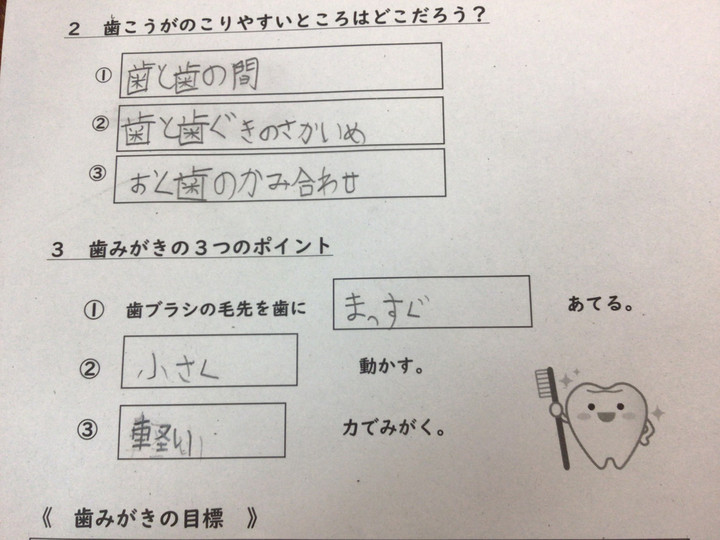 2 歯こうがのこりやすいところはどこだろう？
① 歯と歯の間
② 歯と歯ぐきのさかいめ
③ おく歯のかみ合わせ
3 歯みがきの3つのポイント
① 歯ブラシの毛先を歯に まっすぐ あてる。
② 小さく 動かす。
③ 軽い 力でみがく。
《 歯みがきの目標 》